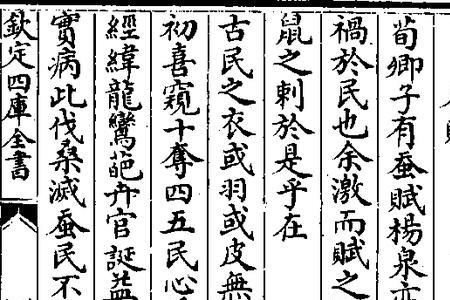 荀卿子有蚕賦楊泉亦
禍於民也余激而賦之
鼠之刺於是乎在
古民之衣或羽或皮無
初喜窺十奪四五民心
經緯龍鸞葩卉官誕益
實病此伐桑滅蚕民不
欽定四庫全書